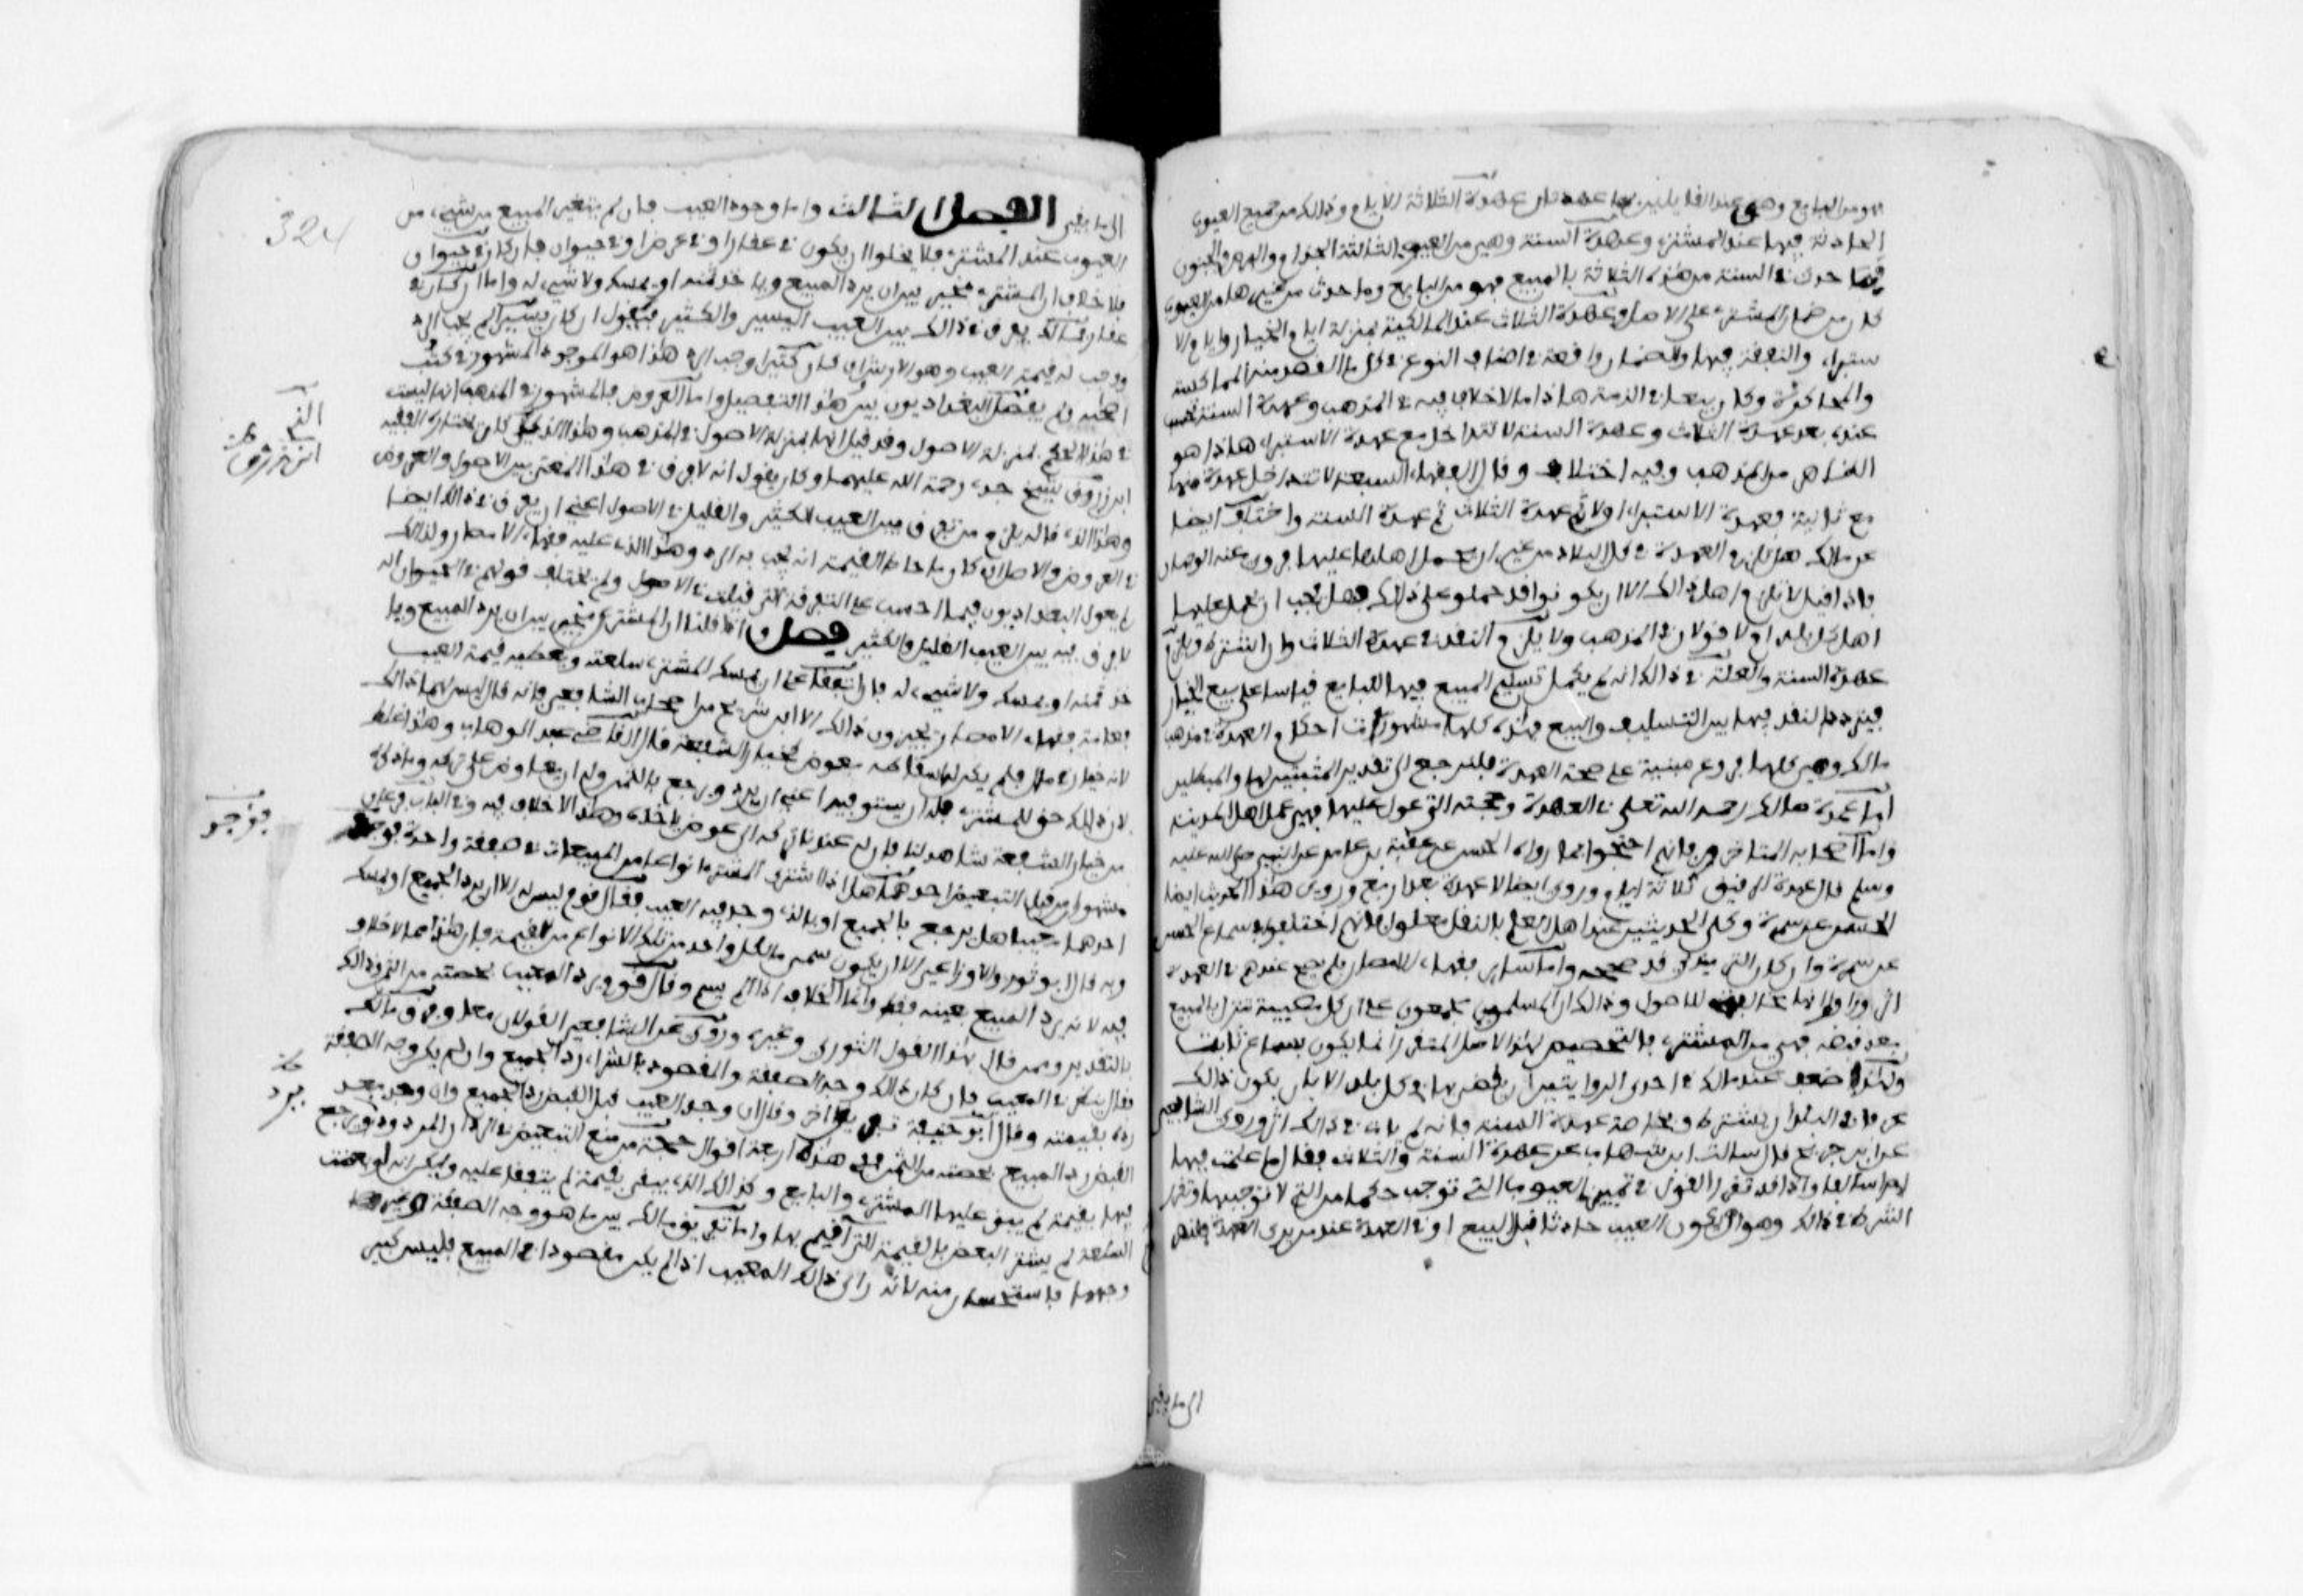 فهو من البايع وهي عند القايلين بها عهدتان عهدة الثلاثة الايام وذالك من جميع العيوب
الحادثة فيها عند المشتري وعهدة السنة وهي من العيوب الثلاثة الجذام والبرص والجنون
فما حدث في السنة من هذه الثلاثة بالمبيع فهو من البايع وما حدث من غيرها من العيوب
كان من ضمان المشتري على الاصل وعهدة الثلاث عند المالكية بمنزلة ايام الخيار وايام الا
ستبراء والنفقة فيها والضمان واقعة في اصناف النوع في كل ما القصد منه المماكسة
والمحاكرة وكان بيعا لا في الذمة هاذا ما لا خلاف فيه في المذهب وعهدة السنة تحسب
عنده بعد عهدة الثلاث وعهدة السنة لا تتداخل مع عهدة الاستبراء هاذا هو
الظاهر من المذهب وفيه اختلاف وقال الفقهاء السبعة لا تتداخل عهدة منها
مع ثانية فعهدة الاستبراء اولا ثم عهدة الثلاث ثم عهدة السنة واختلف ايضا
عن مالك هل تلزم العهدة في كل البلاد من غير ان يحمل اهلها عليها فروى عنه الوجهان
فاذا قيل لا تلزم اهل ذالك الا ان يكونوا قد حملو على ذالك فهل يجب ان يحمل عليها
اهل كل بلد او لا قولان في المذهب ولا يلزم النقد في عهدة الثلاث وان اشترط ويلزم في
عهدة السنة والعلة في ذالك انه لم يكمل تسليم المبيع فيها للبايع قياسا على بيع الخيار
فيتردد النقد فيها بين التسليف والبيع فهذه كلها مشهورات احكام العهدة في مذهب
مالك وهي كلها فروع مبنية على صحة العهدة فلنرجع الى تقدير المثبتين لها والمبطلين
اما عمدة مالك رحمه الله تعلى في العهدة وحجته التي عول عليها فهي عمل اهل المدينة
واما اصحابه المتاخرون فانهم احتجوا بما رواه الحسن عن عقبة بن عامر عن النبي صلى الله عليه
وسلم قال عهدة الرقيق ثلاثة ايام وروي ايضا لا عهدة بعد اربع وروى هذا الحديث ايضا
الحسن عن سمرة وكلى الحديثين عند اهل العلم بالنقل معلول فانهم اختلفوا في سماع الحسن
عن سمرة وان كان الترمذي قد صححه واما ساير فقهاء الامصار فلم يصح عندهم في العهدة
اثر وراوا انها مخالفة للاصول وذالك ان المسلمين مجمعون على ان كل مصيبة تنزل بالمبيع
بعد قبضه فهي من المشتري فالتخصيص لهذا الاصل المتقرر انما يكون بسماع ثابت
ولهذا ضعف عند مالك في احدى الروايتين ان يقضى بها في كل بلد الا ان يكون ذالك
عرفا في البلد او يشترط وبخاصة عهدة السنة فانه لم يات في ذالك اثر وروى الشافعي
عن ابن جريج قال سالت ابن شهاب عن عهدة السنة والثلاث فقال ما علمت فيها
امرا سالفا واذا قد تقرر القول في تمييز العيوب التي توجب حكما من التي لا توجبها وتقرر
الشرط في ذالك وهو ان يكون العيب حادثا قبل البيع او في العهدة عند من يرى العهدة فلنصر
الى ما بقي
324
الى ما بقي الفصل الثالث واما وجود العيب فان لم يتغير المبيع بشيء من
العيوب عند المشتري فلا يخلوا ان يكون في عقار او في عرض او في حيوان فان كان في حيوان
فلا خلاف ان المشتري مخير بين ان يرد المبيع وياخذ ثمنه او يمسك ولا شيء له واما ان كان في
عقار فمالك يفرق في ذالك بين العيب اليسير والكثير فيقول ان كان يسيرا لم يجب الرد
ووجب له قيمة العيب وهو الارش وان كان كثيرا وجب الرد هذا هو الموجود المشهور في كتب
اصحابه ولم يفصل البغداديون بين هذا التفصيل واما العروض فالمشهور في المذهب انها ليست
في هذا الحكم بمنزلة الاصول وقد قيل انها بمنزلة الاصول في المذهب وهذا الذي كان يختاره الفقيه
ابن رزوق شيخ جدي رحمة الله عليهما وكان يقول انه لا فرق في هذا المعنى بين الاصول والعروض
وهذا الذي قاله يلزم من يفرق بين العيب الكثير والقليل في الاصول اعني ان يفرق في ذالك ايضا
في العروض والاصل ان كل ما حط القيمة انه يجب به الرد وهذا الذي عليه فقهاء الامصار ولذالك
لم يعول البغداديون فيما احسب على التفرقة التي قيلت في الاصول ولم يختلف قولهم في الحيوان انه
لا فرق فيه بين العيب القليل والكثير فصل واذا قلنا ان المشتري مخير بين ان يرد المبيع ويا
خذ ثمنه او يمسك ولا شيء له فان اتفقا على ان يمسك المشتري سلعته ويعطيه قيمة العيب
فعامة فقهاء الامصار يجيزون ذالك الا ابن شريح من اصحاب الشافعي فانه قال ليس لهما ذالك
لانه خيار في مال فلم يكن له اسقاطه بعوض كخيار الشفعة قال القاضي عبد الوهاب وهذا غلط
لان ذالك حق للمشتري فله ان يستوفيه اعني ان يرد ويرجع بالثمن وله ان يعاوض على تركه وما ذكره
من خيار الشفعة شاهد لنا فان له عندنا تركه الى عوض ياخذه وهذا لا خلاف فيه وفي الباب فرعان
مشهوران من قبل التبعيض احدهما هل اذا اشترى المشتري انواعا من المبيعات في صفقة واحدة فوجد
احدها معيبا هل يرجع بالجميع او بالذي وجد فيه العيب فقال قوم ليس له الا ان يرد الجميع او يمسك
وبه قال ابو ثور والاوزاعي الا ان يكون سمى ما لكل واحد من تلك الانواع من القيمة فان هذا مما لا خلاف
فيه لانه يرد المبيع بعينه فقط وانما الخلاف اذا لم يسم وقال قوم يرد المعيب بحصته من الثمن وذالك
بالتقدير وممن قال بهذا القول الثوري وغيره وروي عن الشافعي القولان معا وفرق مالك
فقال ينظر في المعيب فان كان ذالك وجه الصفقة والمقصود بالشراء رد الجميع وان لم يكن وجه الصفقة
رده بقيمته وقال ابو حنيفة تفريقا اخر وقال ان وجد العيب قبل القبض رد الجميع وان وجده بعد
القبض رد المبيع بحصته من الثمن ففي هذه اربعة اقوال حجة من منع التبعيض في الرد ان المردود يرجع
فيها بقيمة لم يتفق عليها المشتري والبايع وكذالك الذي يبقى بقيمة لم يتفقا عليه ويمكن انه لو بعضت
السلعة لم يشتر البعض بالقيمة التي اقيم بها واما تفريق مالك بين ما هو وجه الصفقة او غير
وجهها فاستحسان منه لانه راى ذالك المعيب اذا لم يكن مقصودا في المبيع فليس كبير
الفقيه
ابن رزوق
فوجد
يرد